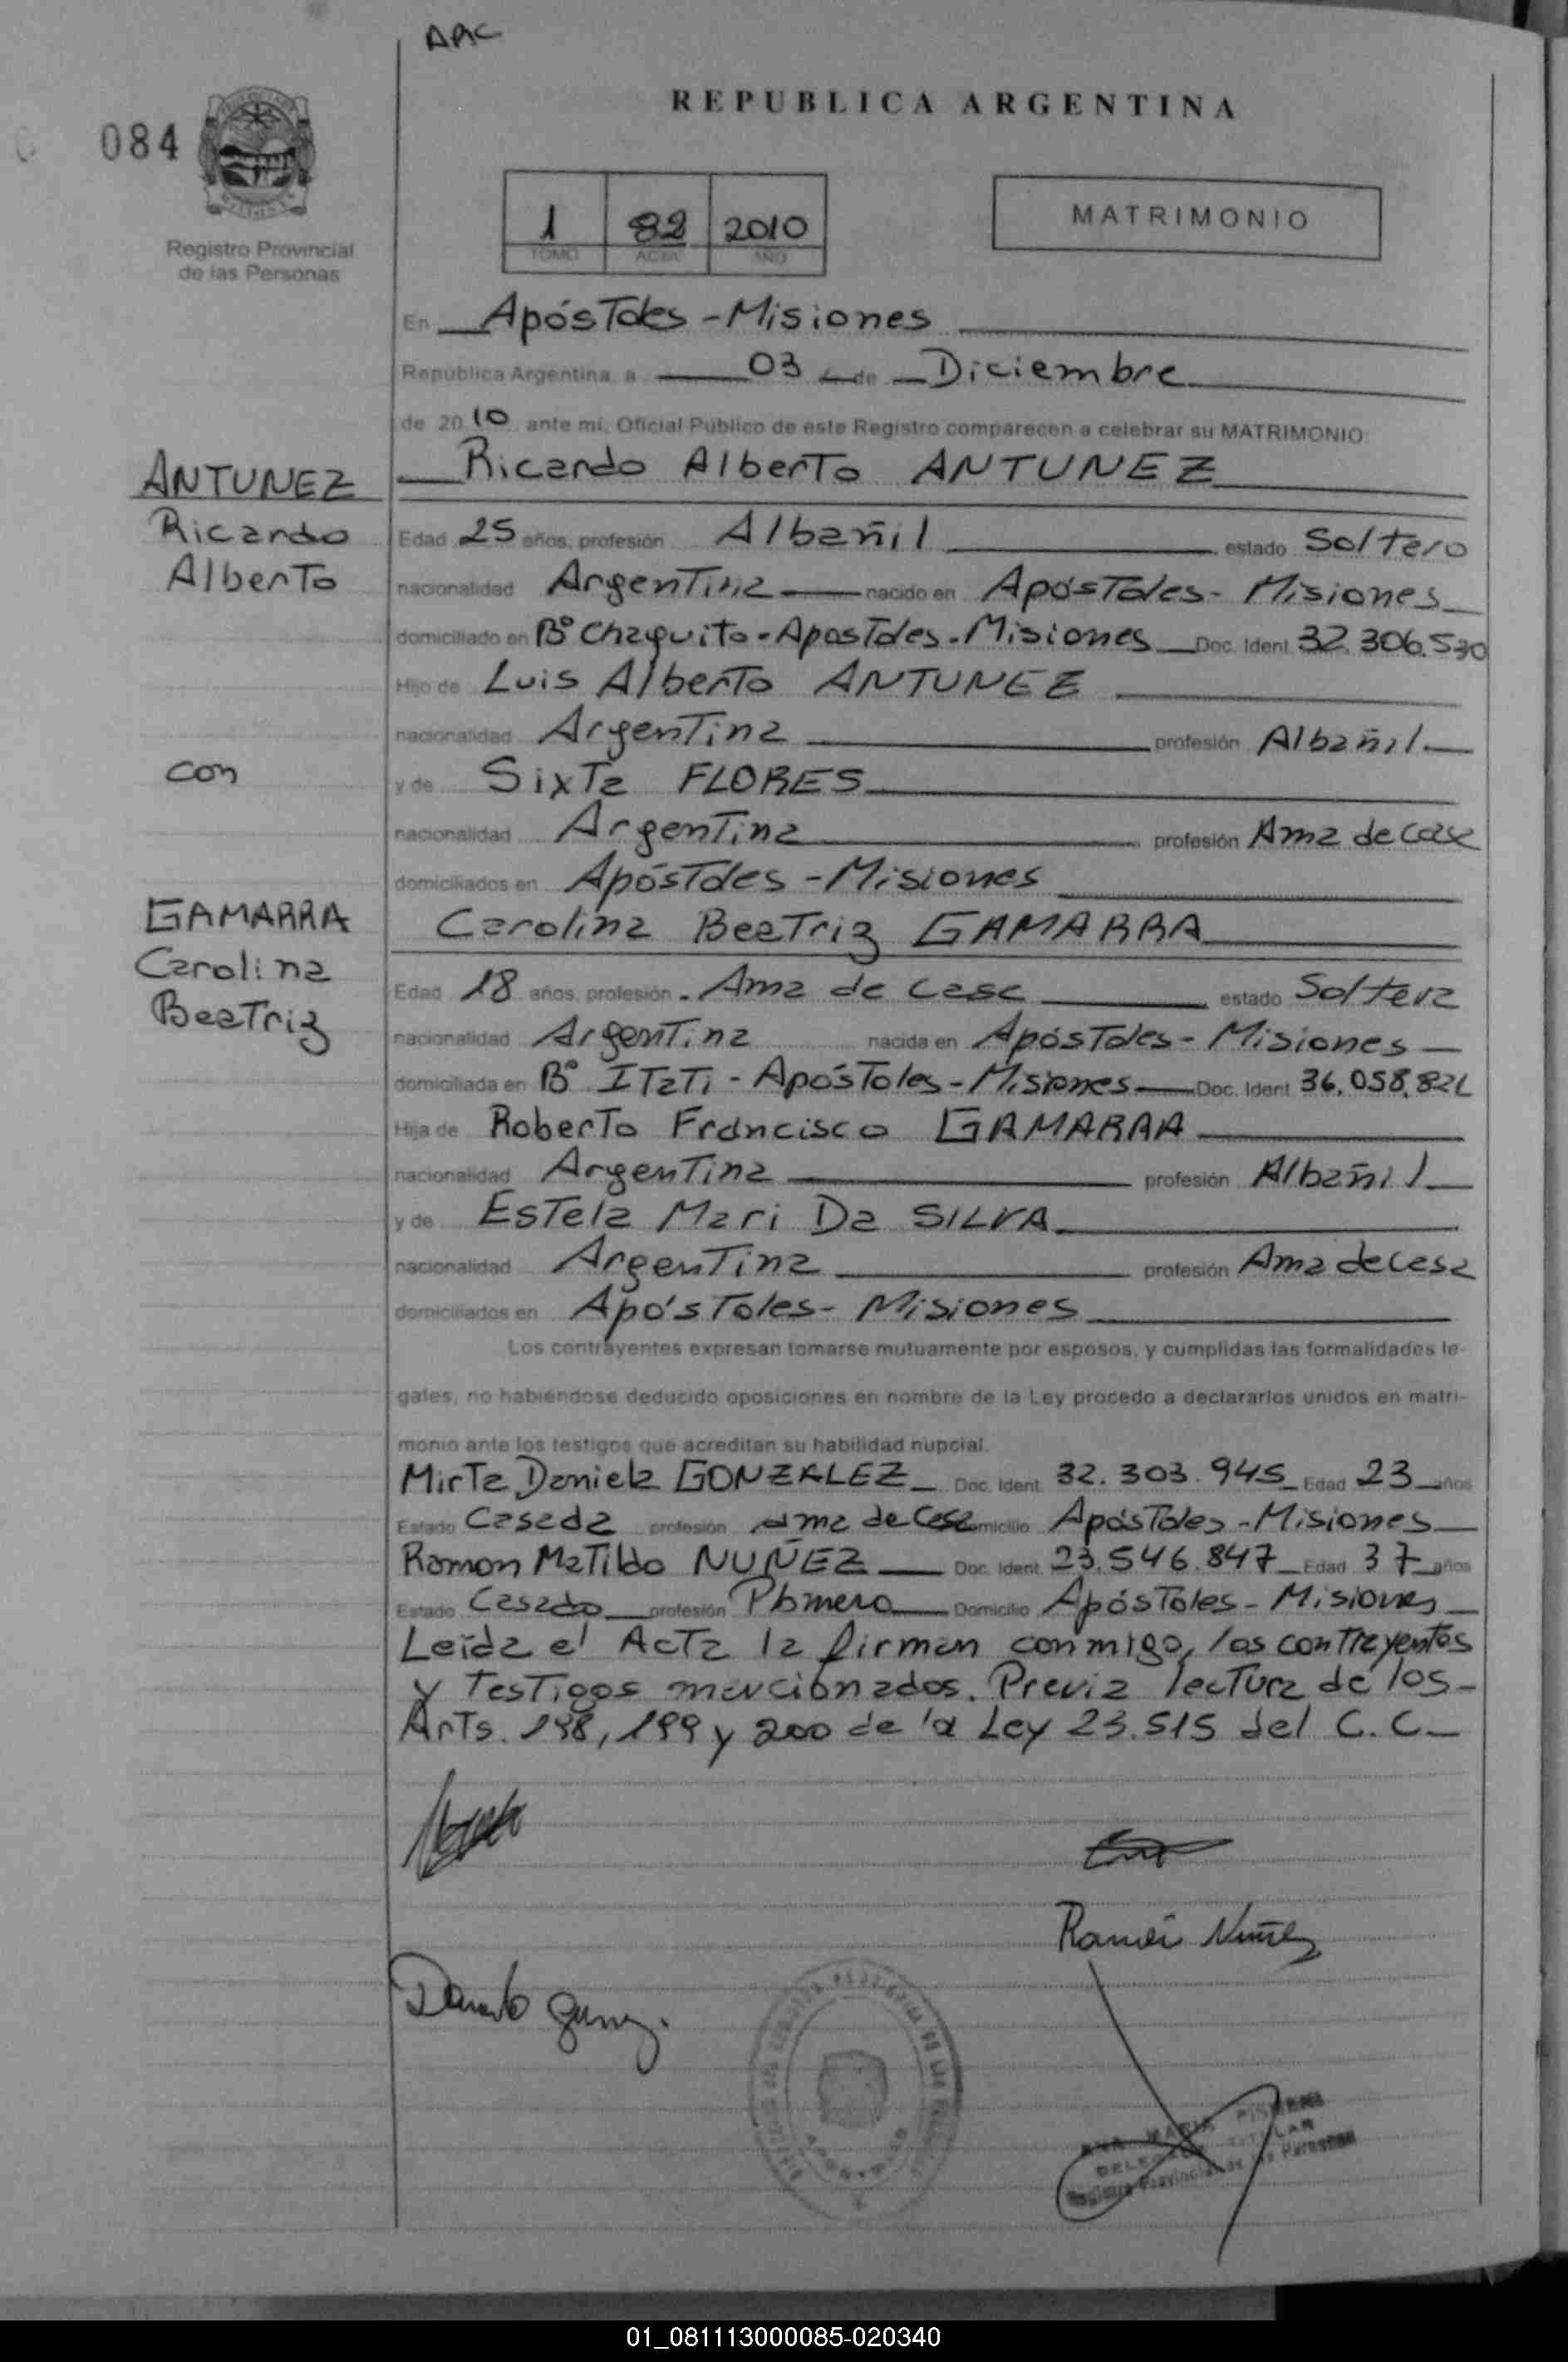 AAC
REPUBLICA ARGENTINA
084
1 82 2010
TOMO ACTA AÑO
MATRIMONIO
Registro Provincial
de las Personas
En Apóstoles - Misiones
República Argentina a 03 de Diciembre
de 2010 ante mí, Oficial Público de este Registro comparecen a celebrar su MATRIMONIO:
Ricardo Alberto ANTUNEZ
ANTUNEZ
Ricardo
Alberto
Edad 25 años, profesión Albañil estado Soltero
nacionalidad Argentina nacido en Apóstoles - Misiones
domiciliado en Bº Chaquito - Apostoles - Misiones Doc. Ident. 32.306.530
Hijo de Luis Alberto ANTUNEZ
nacionalidad Argentina profesión Albañil
con
y de Sixta FLORES
nacionalidad Argentina profesión Ama de casa
domiciliados en Apóstoles - Misiones
GAMARRA
Carolina
Beatriz
Carolina Beatriz GAMARRA
Edad 18 años, profesión - Ama de casa estado Soltera
nacionalidad Argentina nacida en Apóstoles - Misiones
domiciliada en Bº ITaTi - Apóstoles - Misiones Doc. Ident. 36.058.821
Hija de Roberto Francisco GAMARRA
nacionalidad Argentina profesión Albañil
y de Estela Mari Da SILVA
nacionalidad Argentina profesión Ama de casa
domiciliados en Apóstoles - Misiones
Los contrayentes expresan tomarse mutuamente por esposos, y cumplidas las formalidades le-
gales, no habiéndose deducido oposiciones en nombre de la Ley procedo a declararlos unidos en matri-
monio ante los testigos que acreditan su habilidad nupcial.
Mirta Daniela GONZALEZ Doc. Ident. 32.303.945 Edad 23 años
Estado Casada profesión ama de casa Domicilio Apóstoles - Misiones
Ramon Matildo NUÑEZ Doc. Ident. 23.546.847 Edad 37 años
Estado Casado profesión Plomero Domicilio Apóstoles - Misiones
Leída el Acta la firman conmigo, los contrayentes
y Testigos mencionados. Previa lectura de los
Arts. 198, 199 y 200 de la Ley 23.515 del C.C.
Ramón Nuñez
ANA MARIA
DELEGADA TITULAR
Registro Provincial de las Personas
01_081113000085-020340